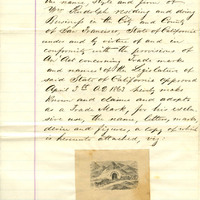 the name, style and firm of
Wm Rudolph residing and doing
Business in the City and County
of San Francisco, State of California
under and by virtue of and in
conformity with the provisions of
An Act concerning Trade marks
and names of the Legislature of
said State of California approved
April 3rd AD 1863 hereby make
known and claims and adopts
as a Trade Mark, for his exclu-
sive use, the name, letters, marks
device and figures, a copy of which
is hereunto attached, viz